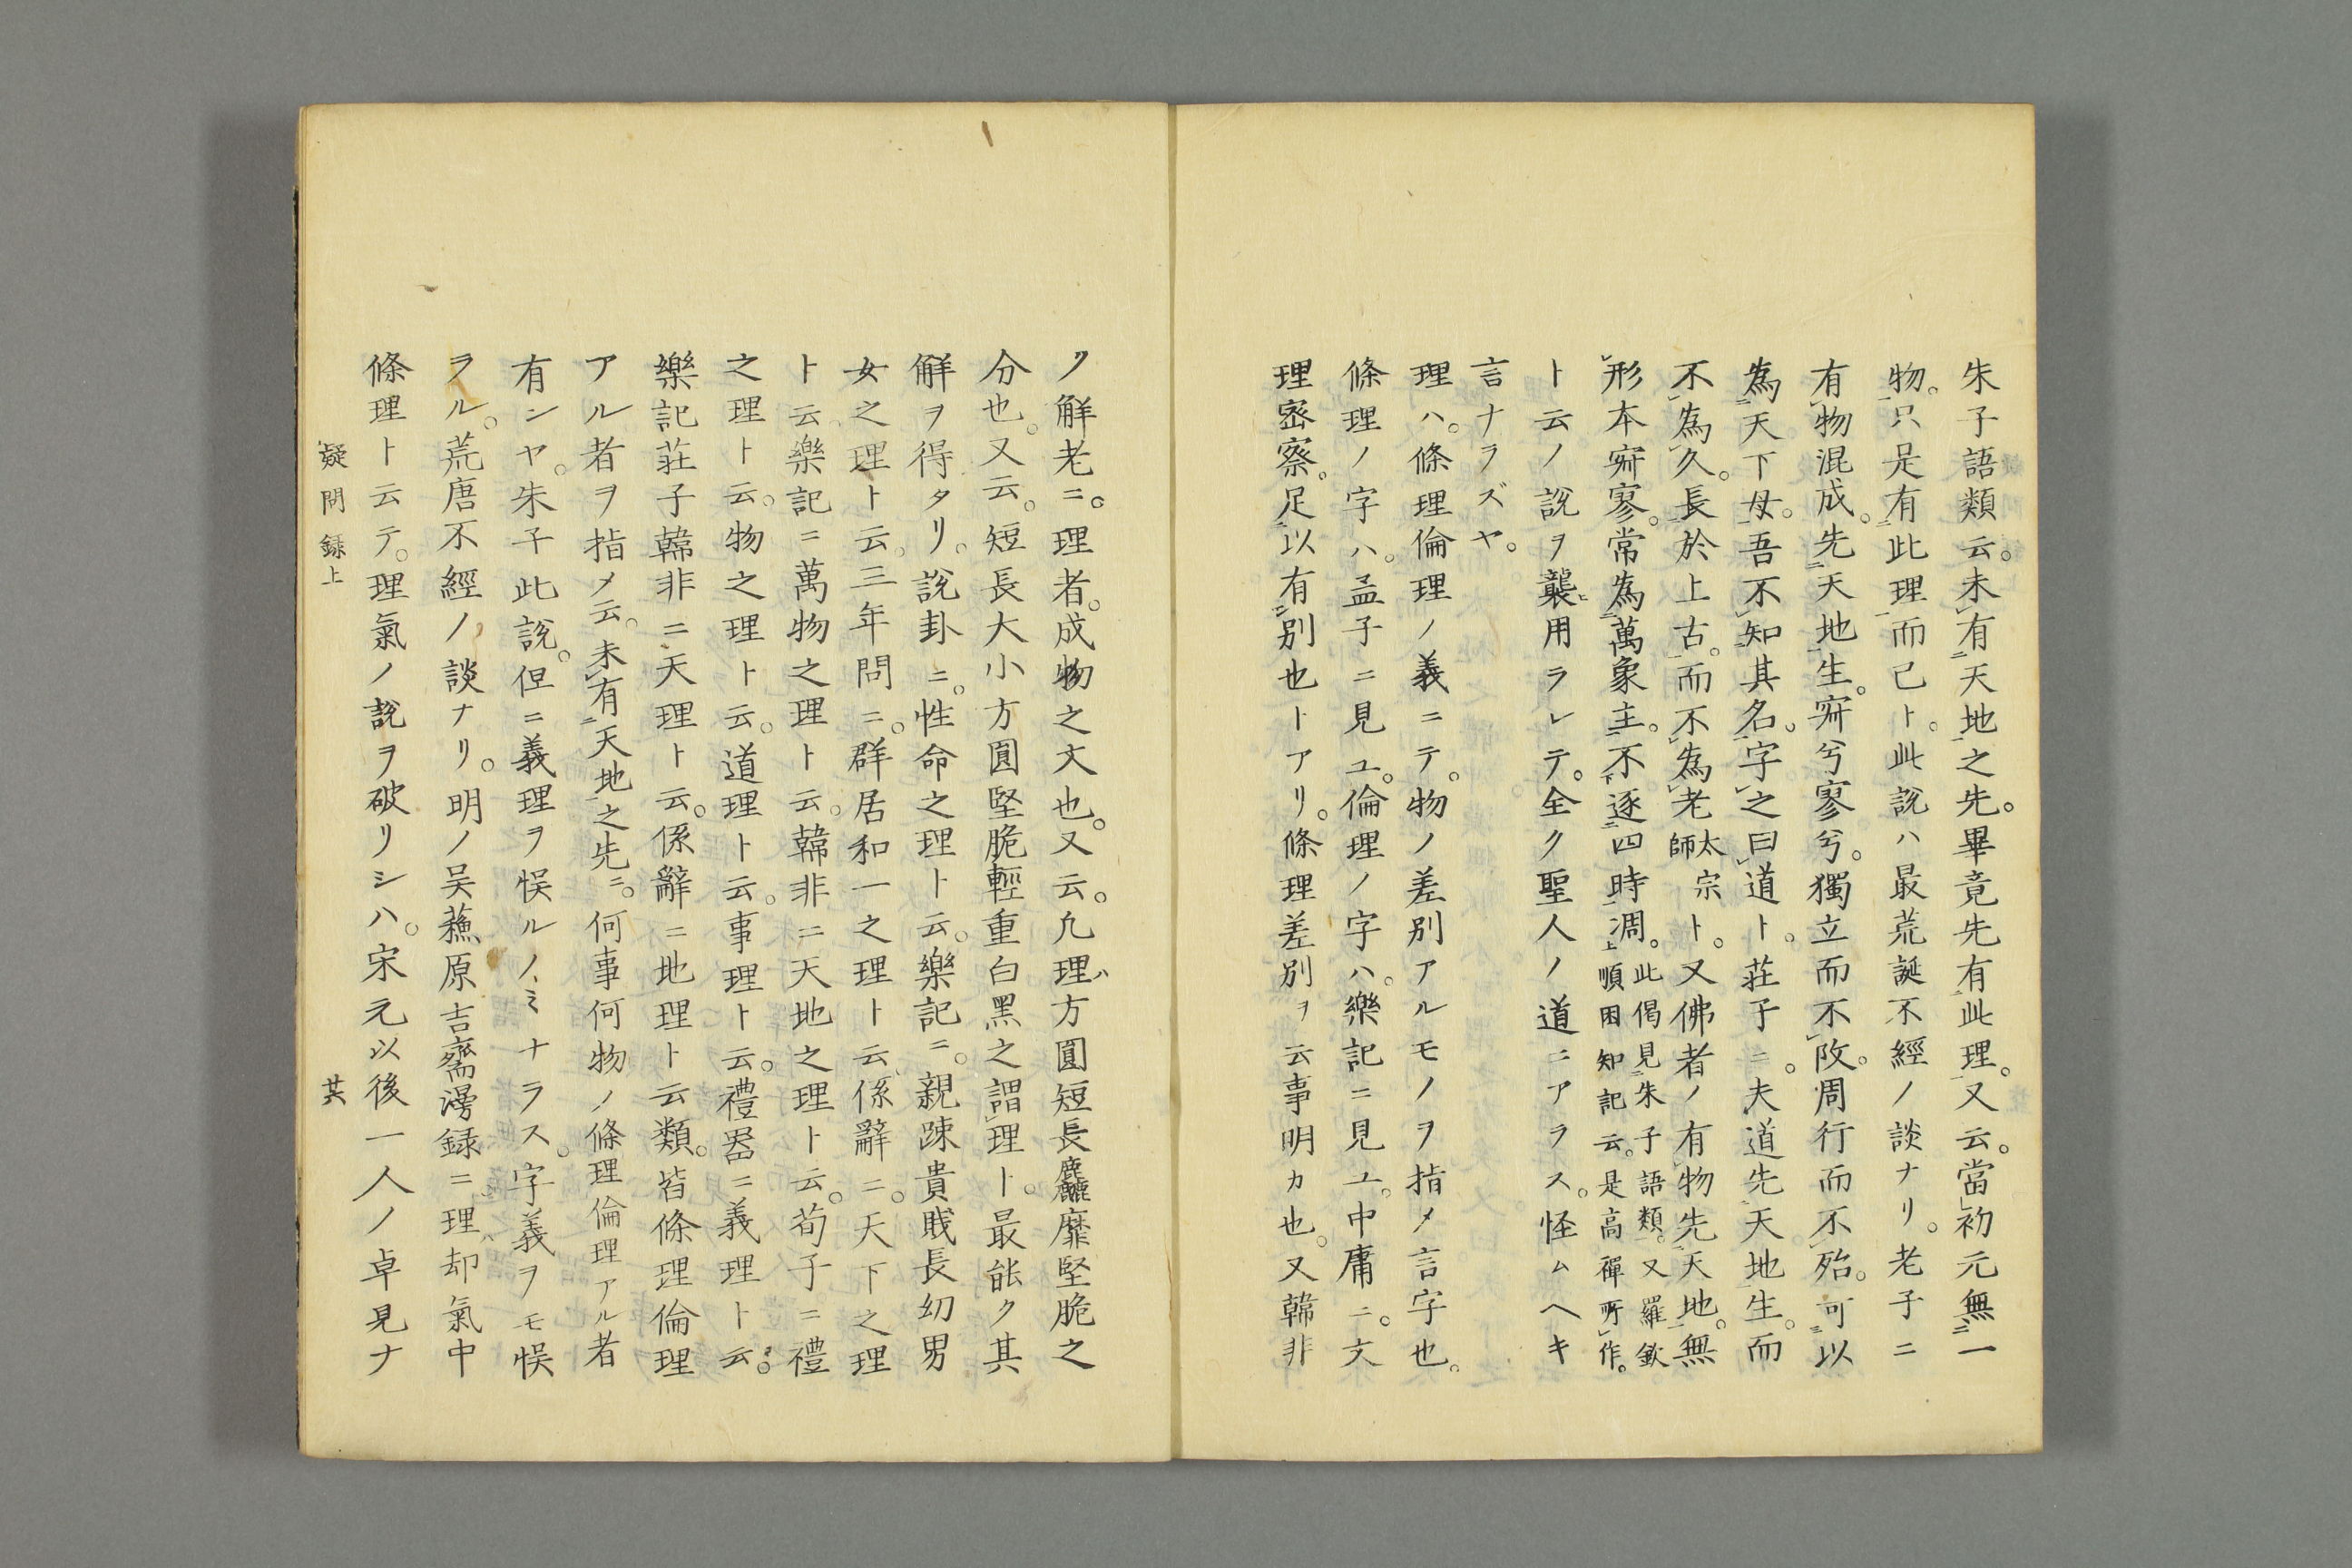 朱子語類云。未有天地之先。畢竟先有此理。又云。當初元無一
物。只是有此理而已ト。此説ハ最荒誕不經ノ談ナリ。老子ニ
有物混成。先天地生。寂兮寥兮。獨立而不改。周行而不殆。可以
為天下母。吾不知其名。字之曰道ト。荘子ニ。夫道先天地生。而
不為久。長於上古。而不為老太宗師ト。又佛者ノ有物先天地。無
形本寂寥。常為萬象主。不逐四時凋。此偈見朱子語類。又羅欽順困知記云。是高禪所作。
ト云ノ説ヲ襲ヒ用ラレテ。全ク聖人ノ道ニアラス。怪ムヘキ
言ナラズヤ。
理ハ。條理倫理ノ義ニテ。物ノ差別アルモノヲ指メ言字也。
條理ノ字ハ。孟子ニ見ユ。倫理ノ字ハ。樂記ニ見ユ。中庸ニ。文
理密察。足以有別也トアリ。條理差別ヲ云事明カ也。又韓非
ノ解老ニ。理者。成物之文也。又云。凡理ハ方圓短長麤靡堅脆之
分也。又云。短長大小方圓堅脆輕重白黑之謂理ト。最能ク其
解ヲ得タリ。説卦ニ。性命之理ト云。樂記ニ。親踈貴賎長幼男
女之理ト云。三年問ニ。群居和一之理ト云。係辭ニ。天下之理
ト云。樂記ニ萬物之理ト云。韓非ニ天地之理ト云。荀子ニ禮
之理ト云。物之理ト云。道理ト云。事理ト云。禮器ニ義理ト云。
樂記荘子韓非ニ天理ト云。係辭ニ地理ト云類。皆條理倫理
アル者ヲ指メ云。未有天地之先ニ。何事何物ノ條理倫理アル者
有ンヤ。朱子此説。但ニ義理ヲ悞ルノミナラス。字義ヲモ悞
ラル。荒唐不經ノ談ナリ。明ノ吴蘓原吉齋漫録ニ。理ハ却氣中
條理ト云テ。理氣ノ説ヲ破リシハ。宋元以後一人ノ卓見ナ
疑問録上 其